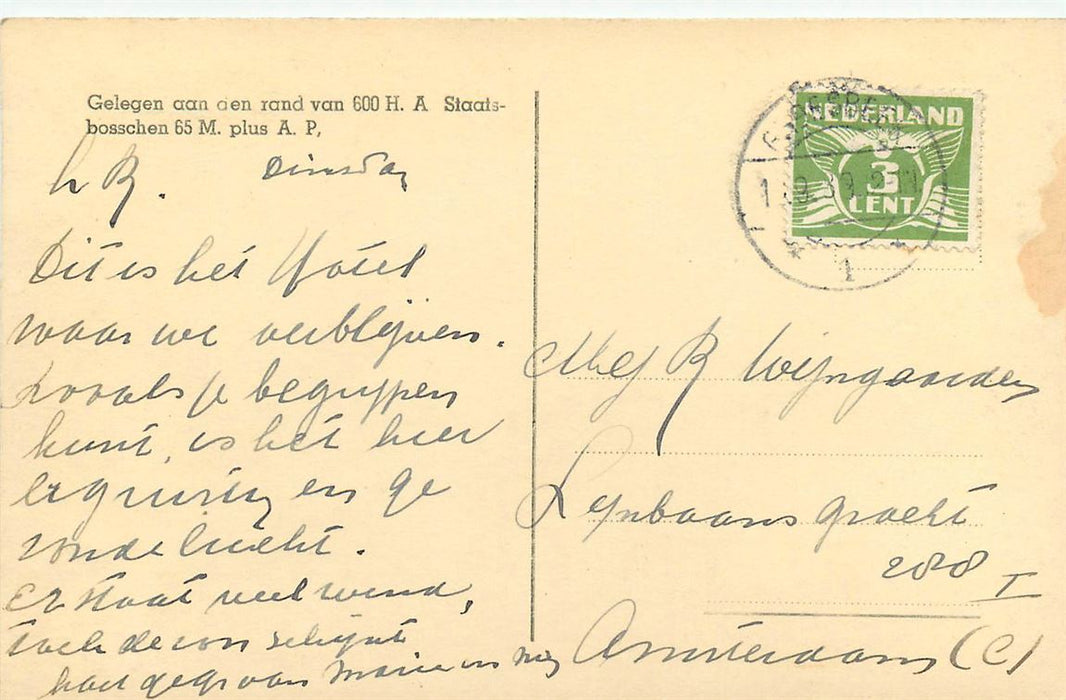 Gelegen aan den rand van 600 H. A Staats-
bosschen 65 M. plus A. P,
L R. Dinsdag
Dit is het Hotel
waar we verblijven.
Zooals je begrijpen
kunt, is het hier
erg rustig en ge
zonde lucht.
Er staat veel wind,
toch de zon schijnt
hart gegroet van Marie en mij
NEDERLAND
3
CENT
1
Mej R Wijngaarden
Lijnbaansgracht
288 I
Amsterdam (C)